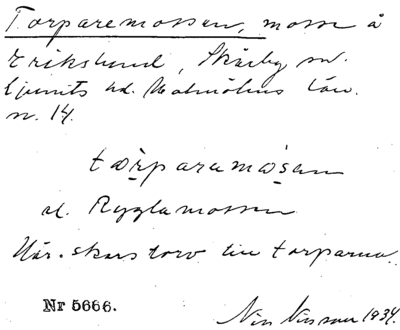 Torparemossen, mosse å
Erikslund, Skårby sn.
Ljunits hd. Malmöhus län.
n. 14.
tɷrparamɷsen
el. Rygglamossen
Här skars torv till torparna.
Nr 5666.
Nils Nilsson 1934.